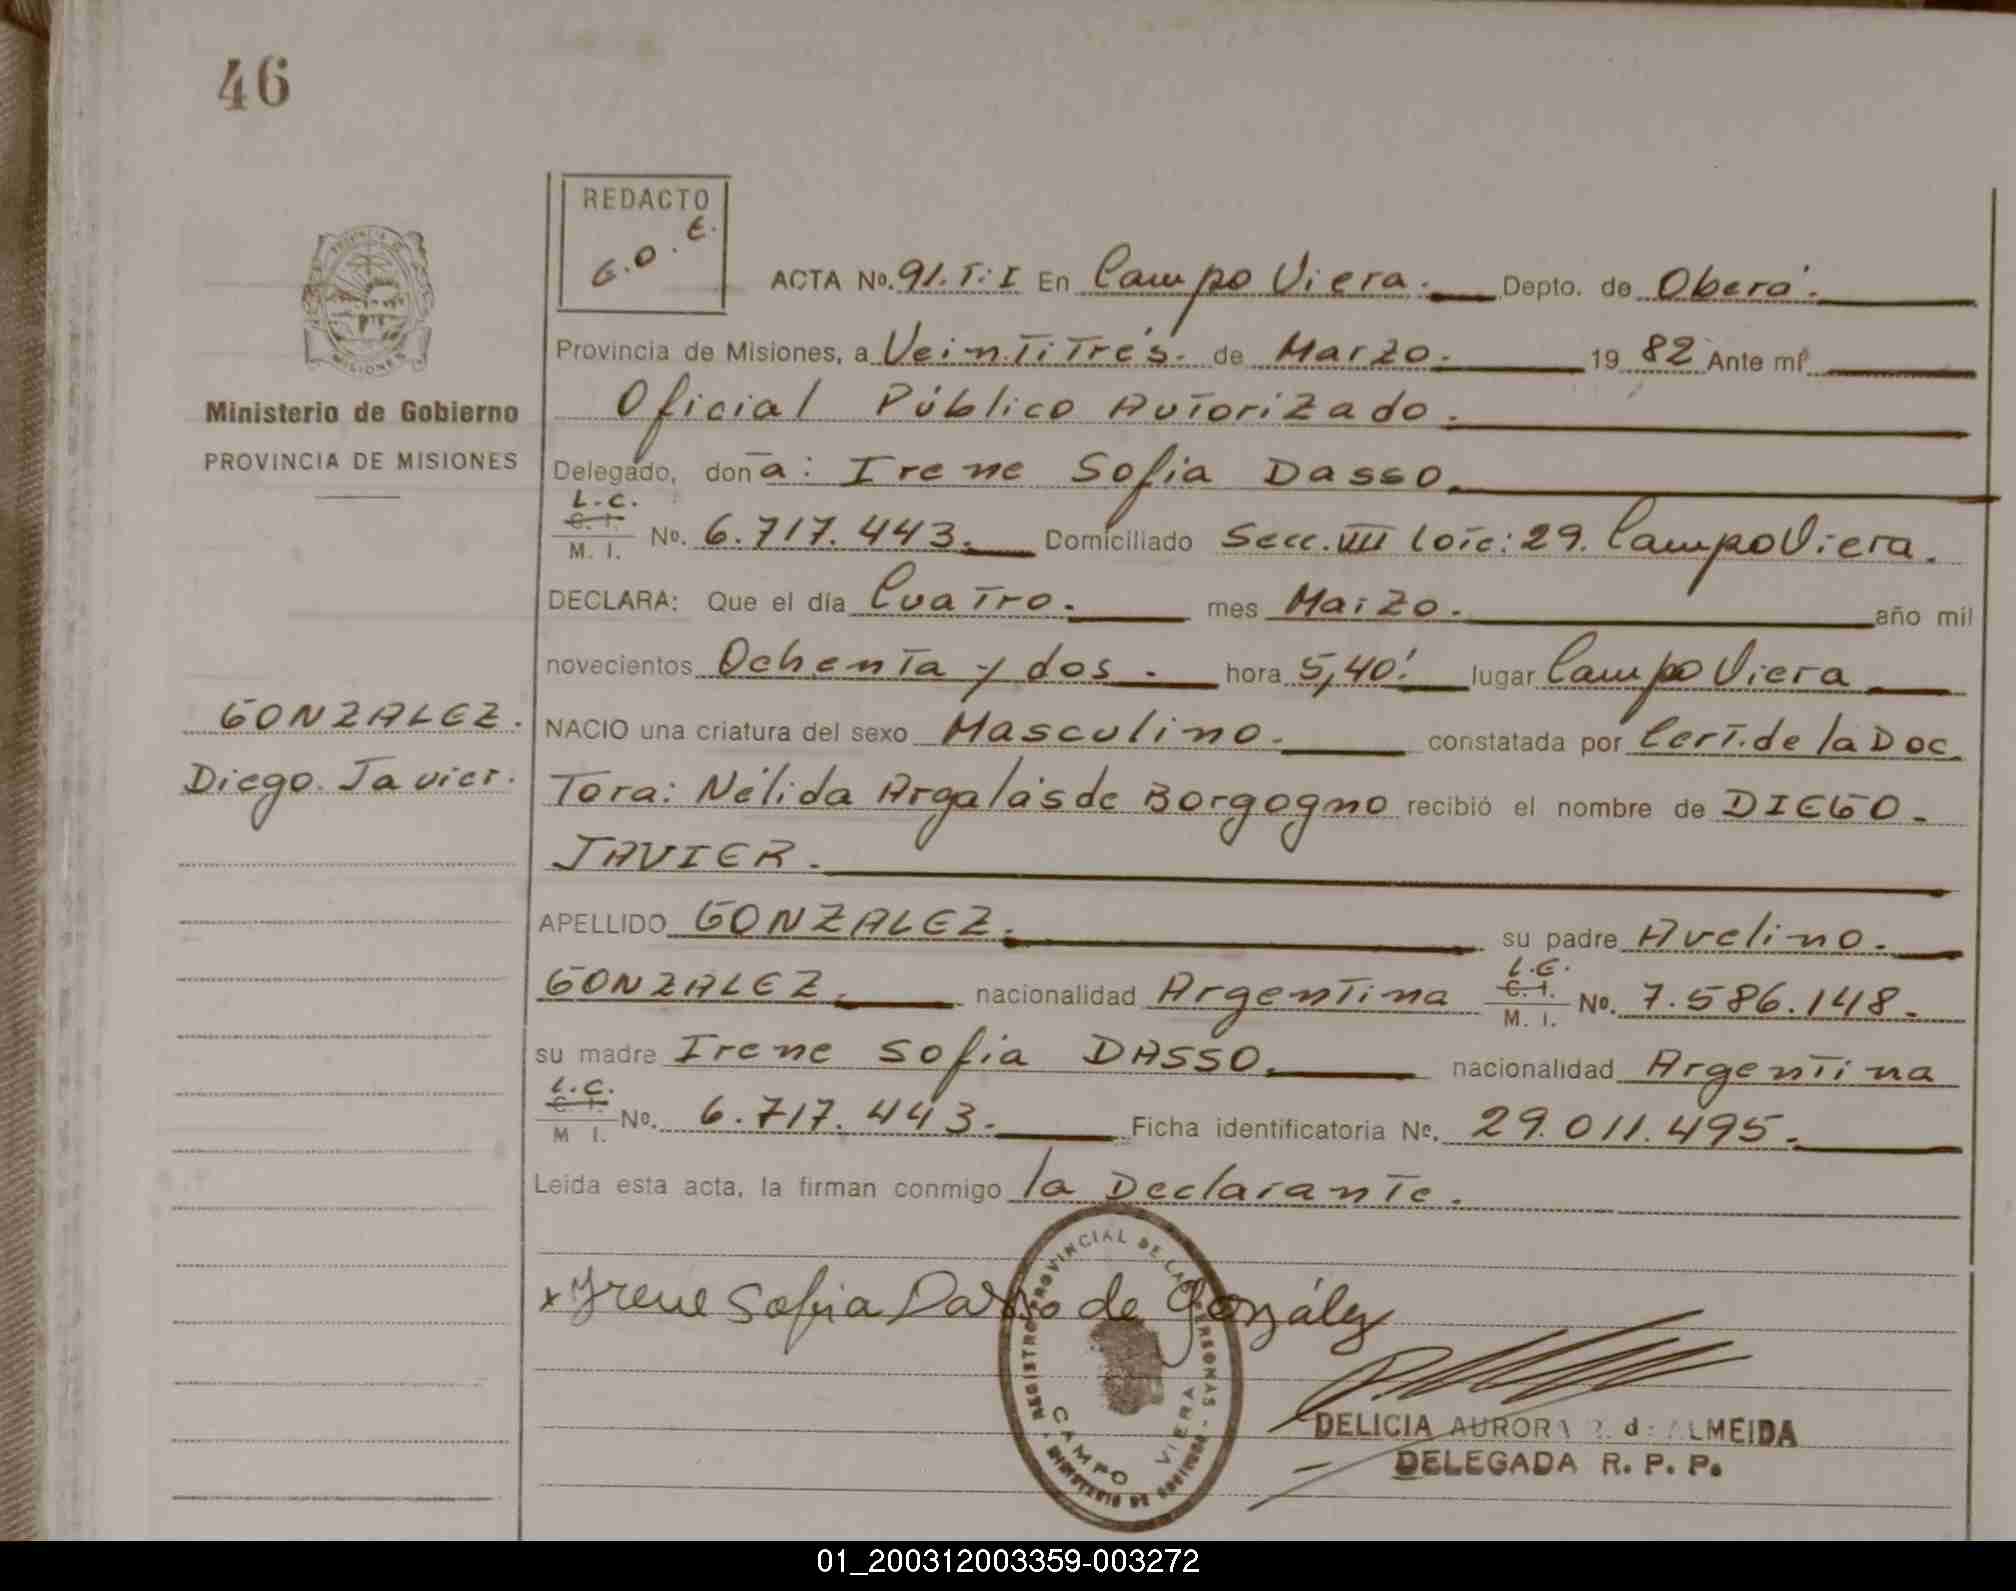 46
REDACTO
G.O.E.
ACTA No. 91.T:I En Campo Viera. Depto. de Oberá.
Provincia de Misiones, a Veintitrés. de Marzo. 1982 Ante mí
Oficial Público Autorizado.
Ministerio de Gobierno
PROVINCIA DE MISIONES
Delegado, doña: Irene Sofia Dasso.
L.C.
C. I.
M. I. No. 6.717.443. Domiciliado Secc. VIII Lote: 29. Campo Viera.
DECLARA: Que el día Cuatro. mes Marzo. año mil
novecientos Ochenta y dos. hora 5,40! lugar Campo Viera
GONZALEZ.
Diego Javier.
NACIO una criatura del sexo Masculino. constatada por Cert. de la Doc
Tora: Nélida Argalás de Borgogno recibió el nombre de DIEGO.
JAVIER.
APELLIDO GONZALEZ. su padre Avelino.
L.E.
GONZALEZ. nacionalidad Argentina C. I. No. 7.586.148.
M. I.
su madre Irene Sofia DASSO. nacionalidad Argentina
L.C.
C. I.
M I. No. 6.717.443. Ficha identificatoria No. 29.011.495.
Leida esta acta, la firman conmigo la Declarante.
x Irene Sofia Dasso de González
REGISTRO PROVINCIAL DE LAS PERSONAS - MINISTERIO DE GOBIERNO
CAMPO VIERA
DELICIA AURORA d ALMEIDA
DELEGADA R. P. P.
01_200312003359-003272